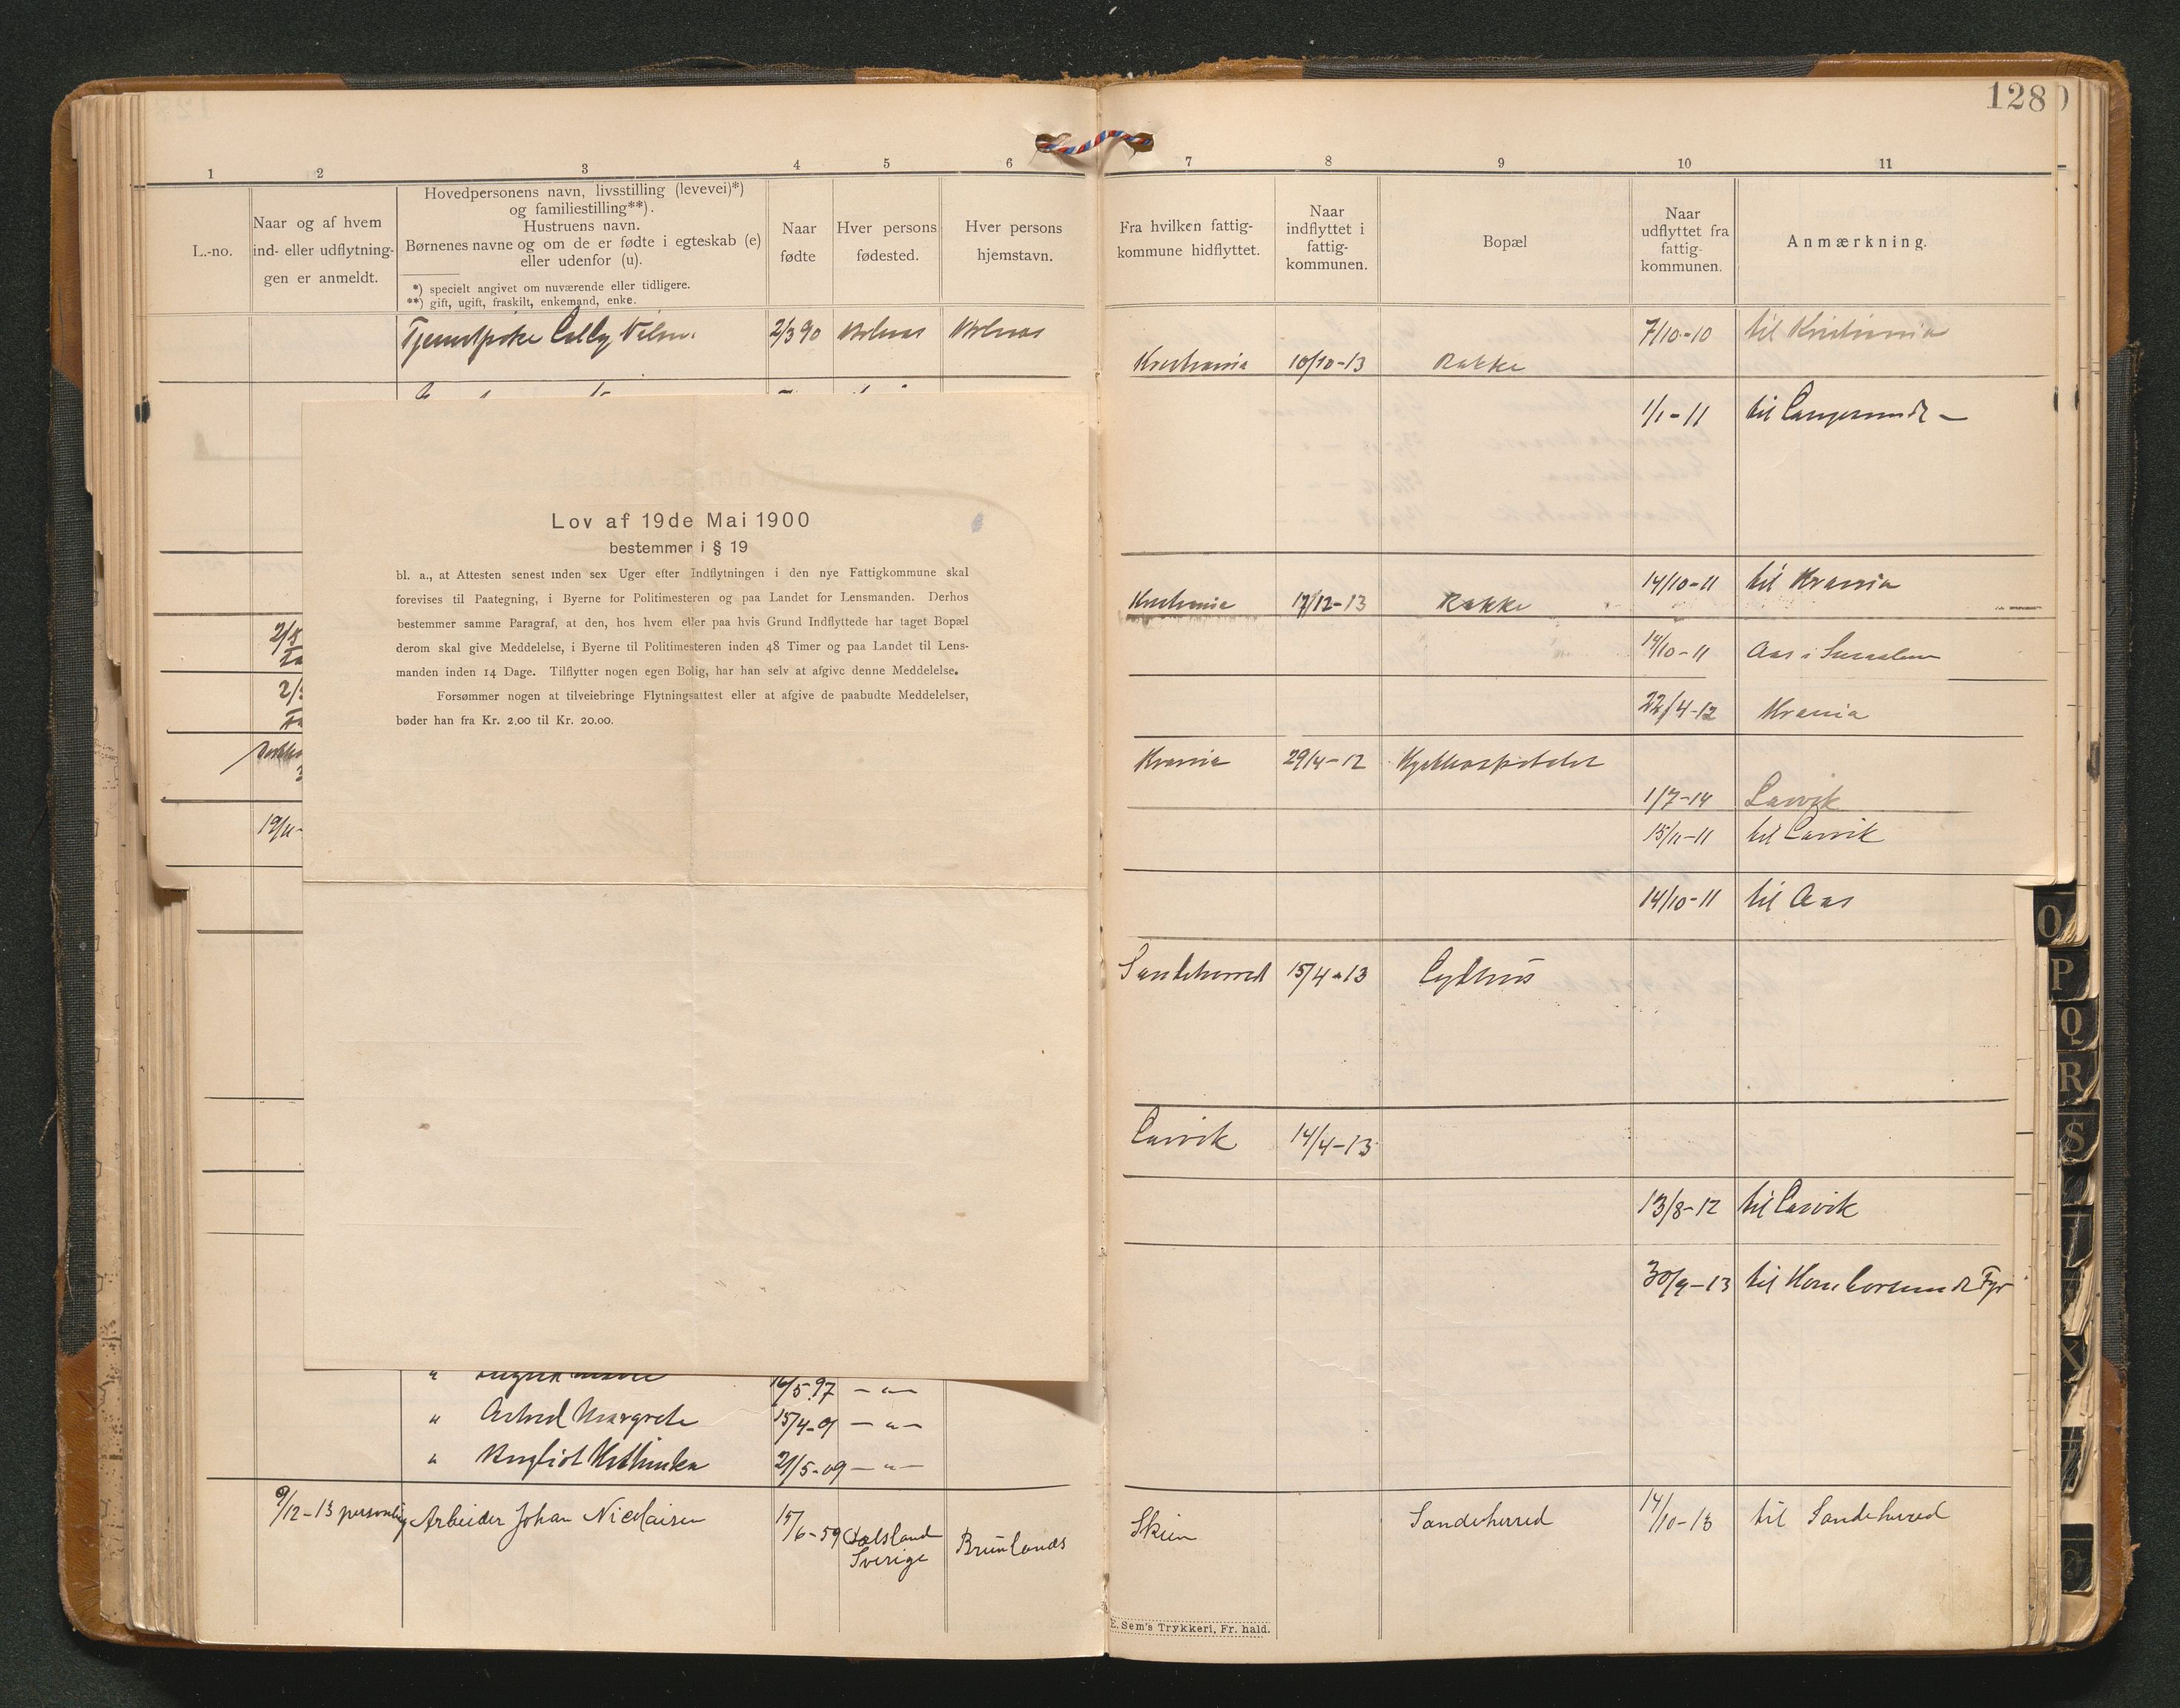 128
1 2 3 4 5 6 7 8 9 10 11
L.-no.
Naar og af hvem
ind- eller udflytnin-
gen er anmeldt.
Hovedpersonens navn, livsstilling (levevei)*)
og familiestilling**).
Hustruens navn.
Børnenes navne og om de er fødte i egteskab (e)
eller udenfor (u).
*) specielt angivet om nuværende eller tidligere.
**) gift, ugift, fraskilt, enkemand, enke.
Naar
fødte
Hver persons
fødested.
Hver persons
hjemstavn.
Fra hvilken fattig-
kommune hidflyttet.
Naar
indflyttet i
fattig-
kommunen.
Bopæl
Naar
udflyttet fra
fattig-
kommunen.
Anmærkning.
2/3 90
7/10-10 til Kristiania
Kristiania 10/10-13 Rakke
1/1-11 til Langesund
14/10-11 til Krania
Kristiania 17/12-13 Rakke
14/10-11 Aas i
22/4-12 Krania
Krania 29/4-12 Kysthospitalet
1/7-14 Larvik
19/11-
15/11-11 til Larvik
14/10-11 til Aas
Sandeherred 15/4-13
Larvik 14/4-13
13/8-12 til Larvik
30/9-13 til Homborsund Fyr
Lov af 19de Mai 1900
bestemmer i § 19
bl. a., at Attesten senest inden sex Uger efter Indflytningen i den nye Fattigkommune skal
forevises til Paategning, i Byerne for Politimesteren og paa Landet for Lensmanden. Derhos
bestemmer samme Paragraf, at den, hos hvem eller paa hvis Grund Indflyttede har taget Bopæl
derom skal give Meddelelse, i Byerne til Politimesteren inden 48 Timer og paa Landet til Lens-
manden inden 14 Dage. Tilflytter nogen egen Bolig, har han selv at afgive denne Meddelelse.
Forsømmer nogen at tilveiebringe Flytningsattest eller at afgive de paabudte Meddelelser,
bøder han fra Kr. 2.00 til Kr. 20.00.
16/5 97 — " —
" Astrid Margrete 15/4-01 — " —
" Bergliot Kathinka 21/5-09 — " —
9/12-13 personlig Arbeider Johan Nicolaisen 15/6-59 Dalsland Brunlanes Skien Sandeherred 14/10-13 til Sandeherred
Sverige
E. Sem's Trykkeri, Fr. hald.
O
P
Q
R
S
X
Ø